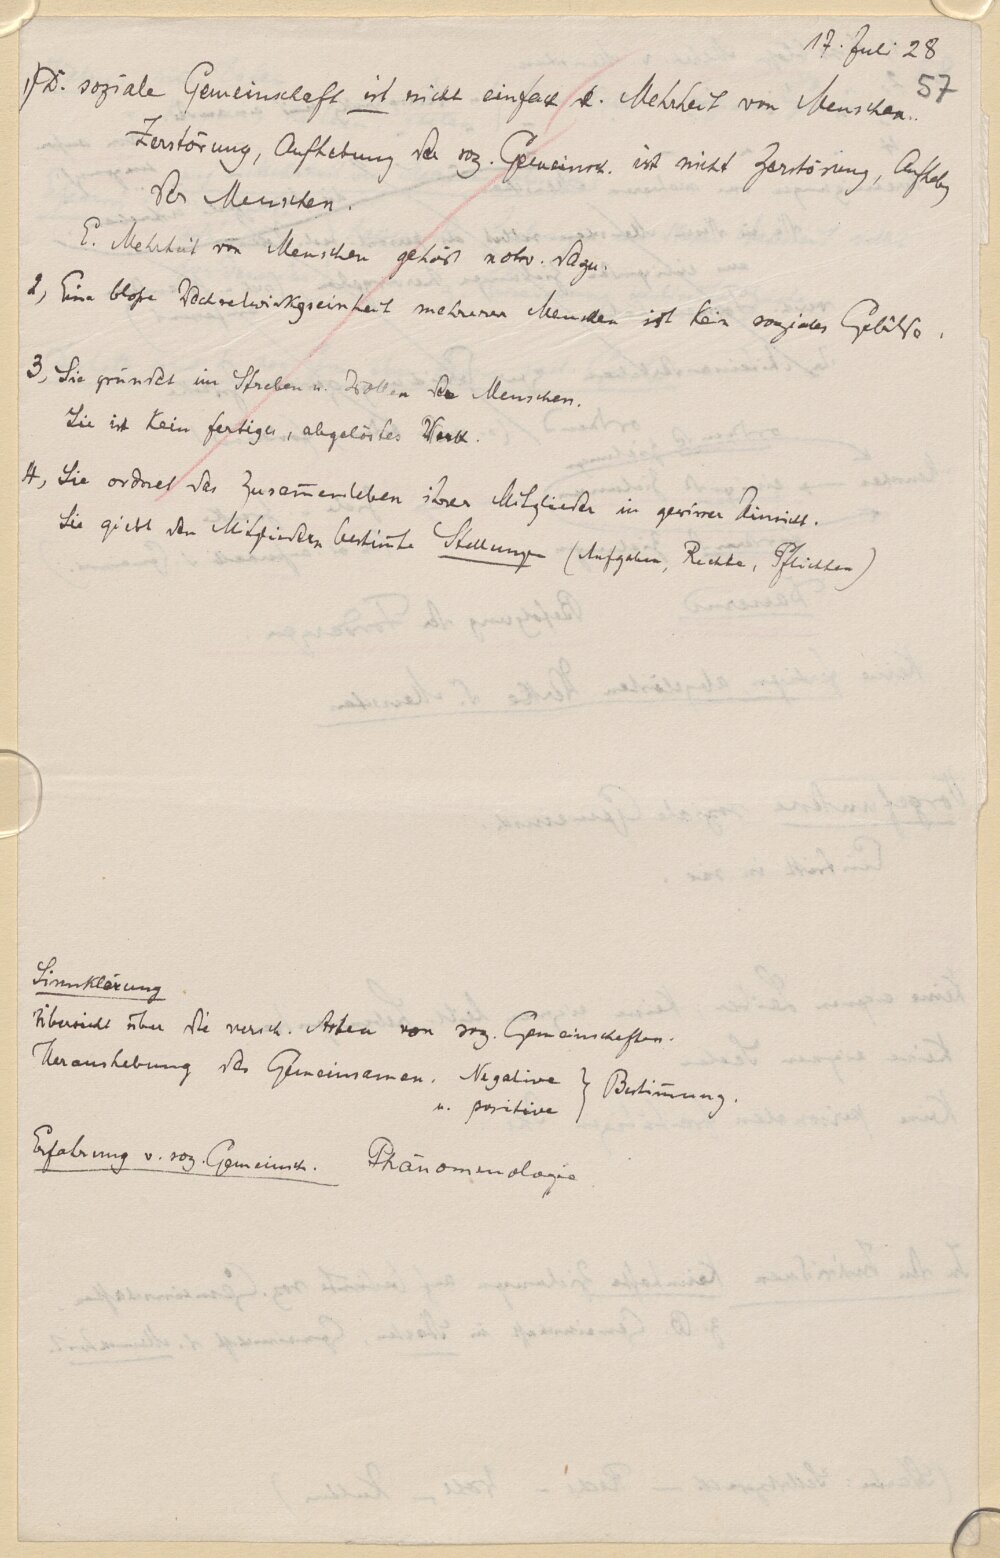 17. Juli 28
57
1) D. soziale Gemeinschaft ist nicht einfach e. Mehrheit von Menschen.
Zerstörung, Aufhebung der soz. Gemeinsch. ist nicht Zerstörung, Aufhebg
der Menschen.
E. Mehrheit von Menschen gehört notw. dazu.
2, Eine bloße Wechselwirkgseinheit mehrerer Menschen ist kein soziales Gebilde.
3, Sie gründet im Streben u. Wollen der Menschen.
Sie ist kein fertiges, abgelöstes Werk.
4, Sie ordnet das Zusam̄enleben ihrer Mitglieder in gewisser Hinsicht.
Sie giebt den Mitgliedern bestim̄te Stellungen (Aufgaben, Rechte, Pflichten)
Sinnklärung
Übersicht über die versch. Arten von soz. Gemeinschaften.
Heraushebung des Gemeinsamen. Negative
u. positive } Bestim̄ung.
Erfahrung v. soz. Gemeinsch. Phänomenologie